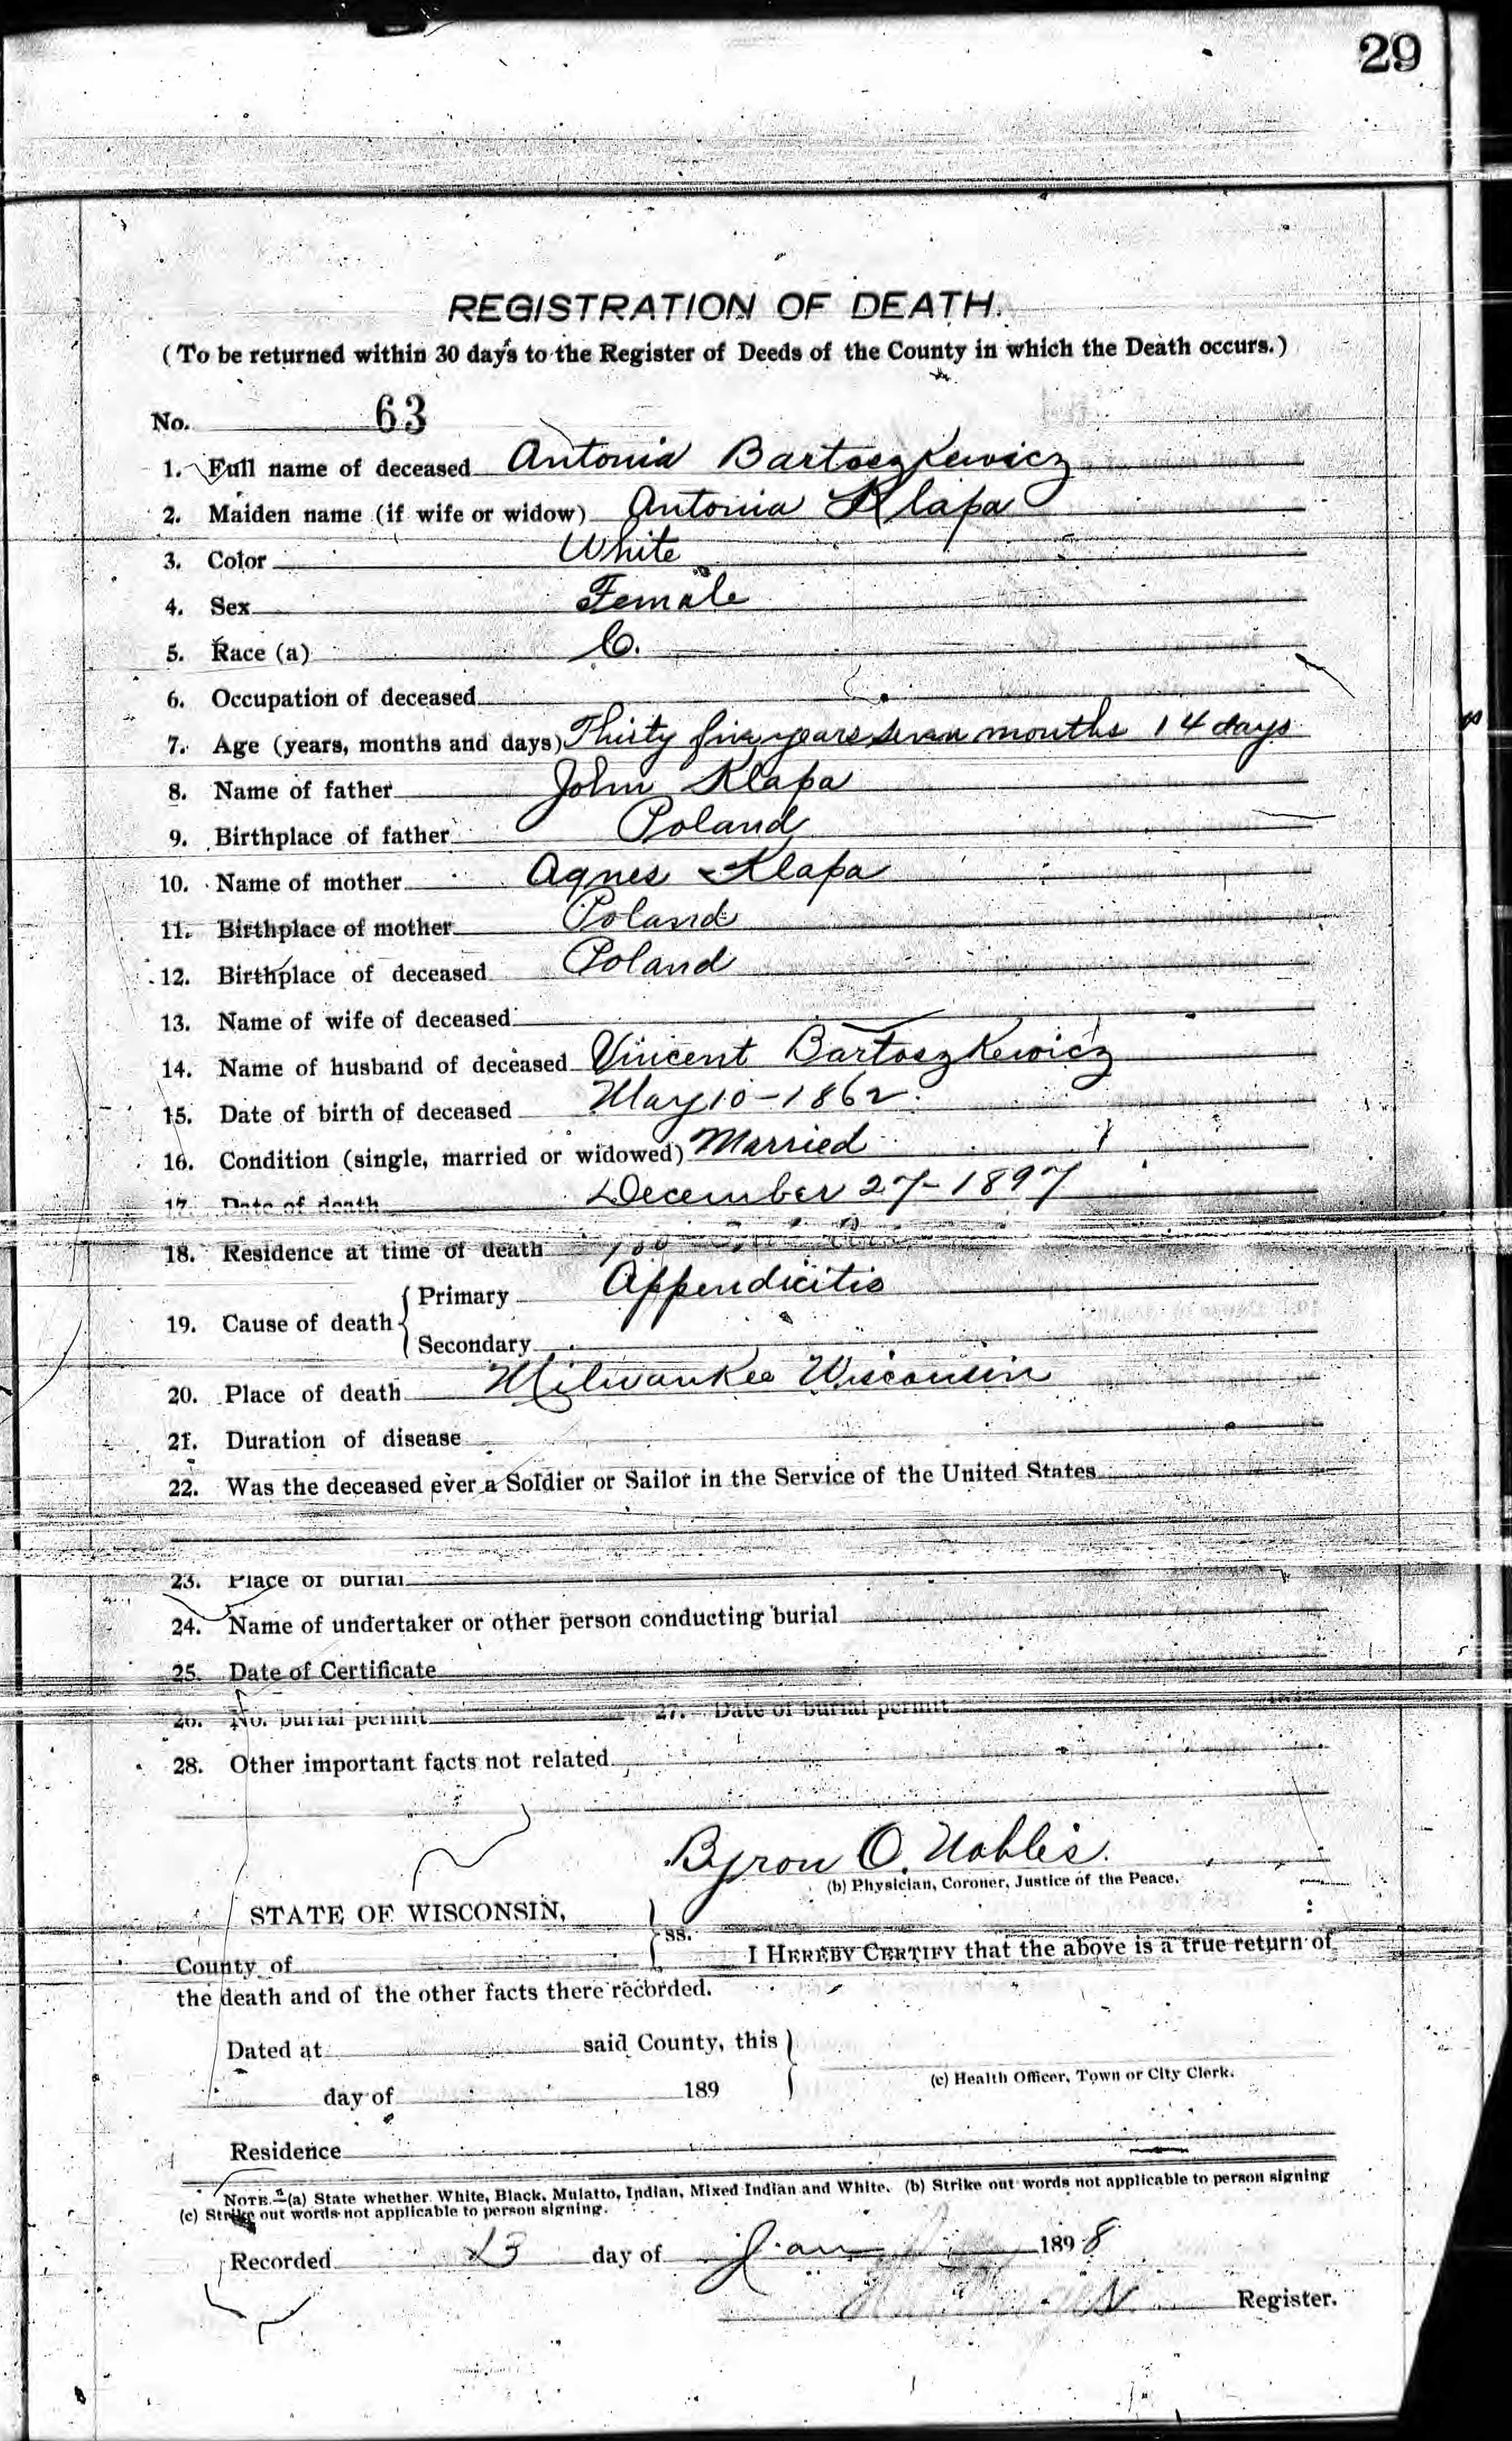 29
REGISTRATION OF DEATH.
(To be returned within 30 days to the Register of Deeds of the County in which the Death occurs.)
No. 63
1. Full name of deceased Antonia Bartoszkewicz
2. Maiden name (if wife or widow) Antonia Klapa
3. Color White
4. Sex Female
5. Race (a) C.
6. Occupation of deceased
7. Age (years, months and days) Thirty five years seven months 14 days
8. Name of father John Klapa
9. Birthplace of father Poland
10. Name of mother Agnes Klapa
11. Birthplace of mother Poland
12. Birthplace of deceased Poland
13. Name of wife of deceased
14. Name of husband of deceased Vincent Bartoszkewicz
15. Date of birth of deceased May 10-1862
16. Condition (single, married or widowed) Married
17. Date of death December 27-1897
18. Residence at time of death
19. Cause of death { Primary Appendicitis
Secondary
20. Place of death Milwaukee Wisconsin
21. Duration of disease
22. Was the deceased ever a Soldier or Sailor in the Service of the United States
23. Place of burial
24. Name of undertaker or other person conducting burial
25. Date of Certificate
26. No. burial permit 27. Date of burial permit
28. Other important facts not related
Byron O. Nobles
(b) Physician, Coroner, Justice of the Peace.
STATE OF WISCONSIN,
ss.
County of I HEREBY CERTIFY that the above is a true return of
the death and of the other facts there recorded.
Dated at said County, this
(c) Health Officer, Town or City Clerk.
day of 189
Residence
NOTE.—(a) State whether White, Black, Mulatto, Indian, Mixed Indian and White. (b) Strike out words not applicable to person signing
(c) Strike out words not applicable to person signing.
Recorded 23 day of Jan 1898
Register.